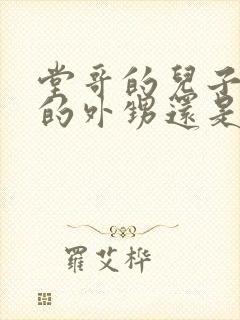 堂哥的兒子
的外甥還是
羅艾桦